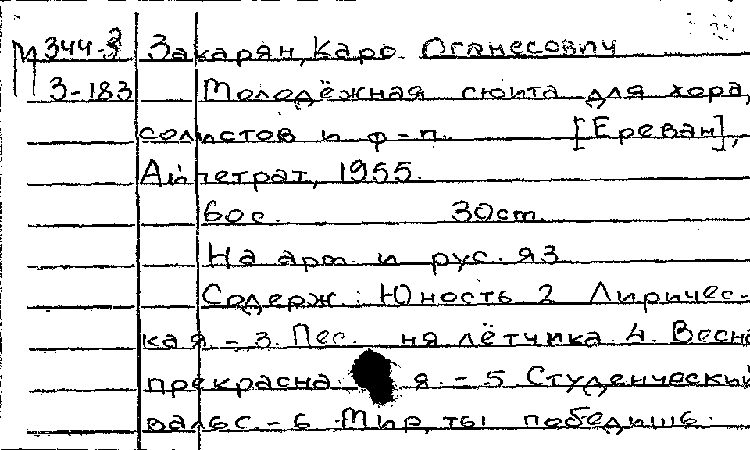 М 344-3 Закарян, Каро Оганесович
З-183 Молодёжная сюита для хора,
солистов и ф-п. [Ереван],
Айпетрат, 1955.
60 с. 30 cm
На арм. и рус. яз
Содерж.: Юность 2 Лиричес-
кая - 3. Пес. ня лётчика 4. Весна
прекрасна я. - 5 Студенческий
вальс. - 6 Мир, ты победишь.